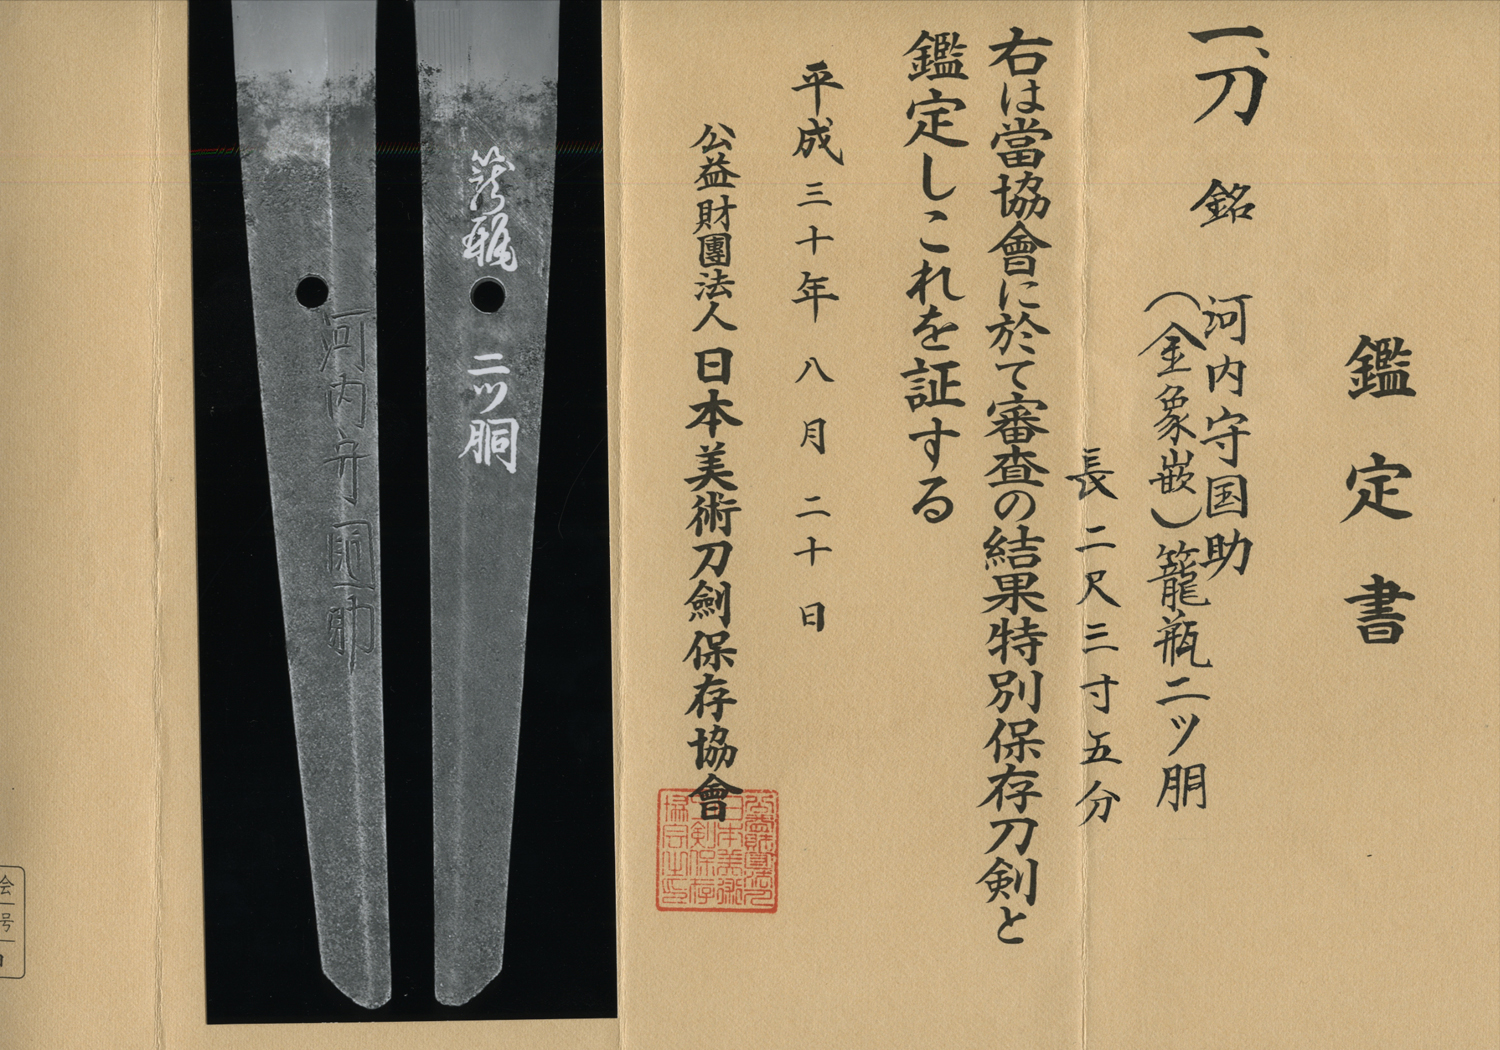 鑑定書
一、刀 銘 河内守国助
(金象嵌)籠瓶二ツ胴
長二尺三寸五分
右は當協會に於て審査の結果特別保存刀剣と
鑑定しこれを証する
平成三十年八月二十日
公益財團法人日本美術刀劍保存協會
籠瓶
二ツ胴
河内守國助
会
号